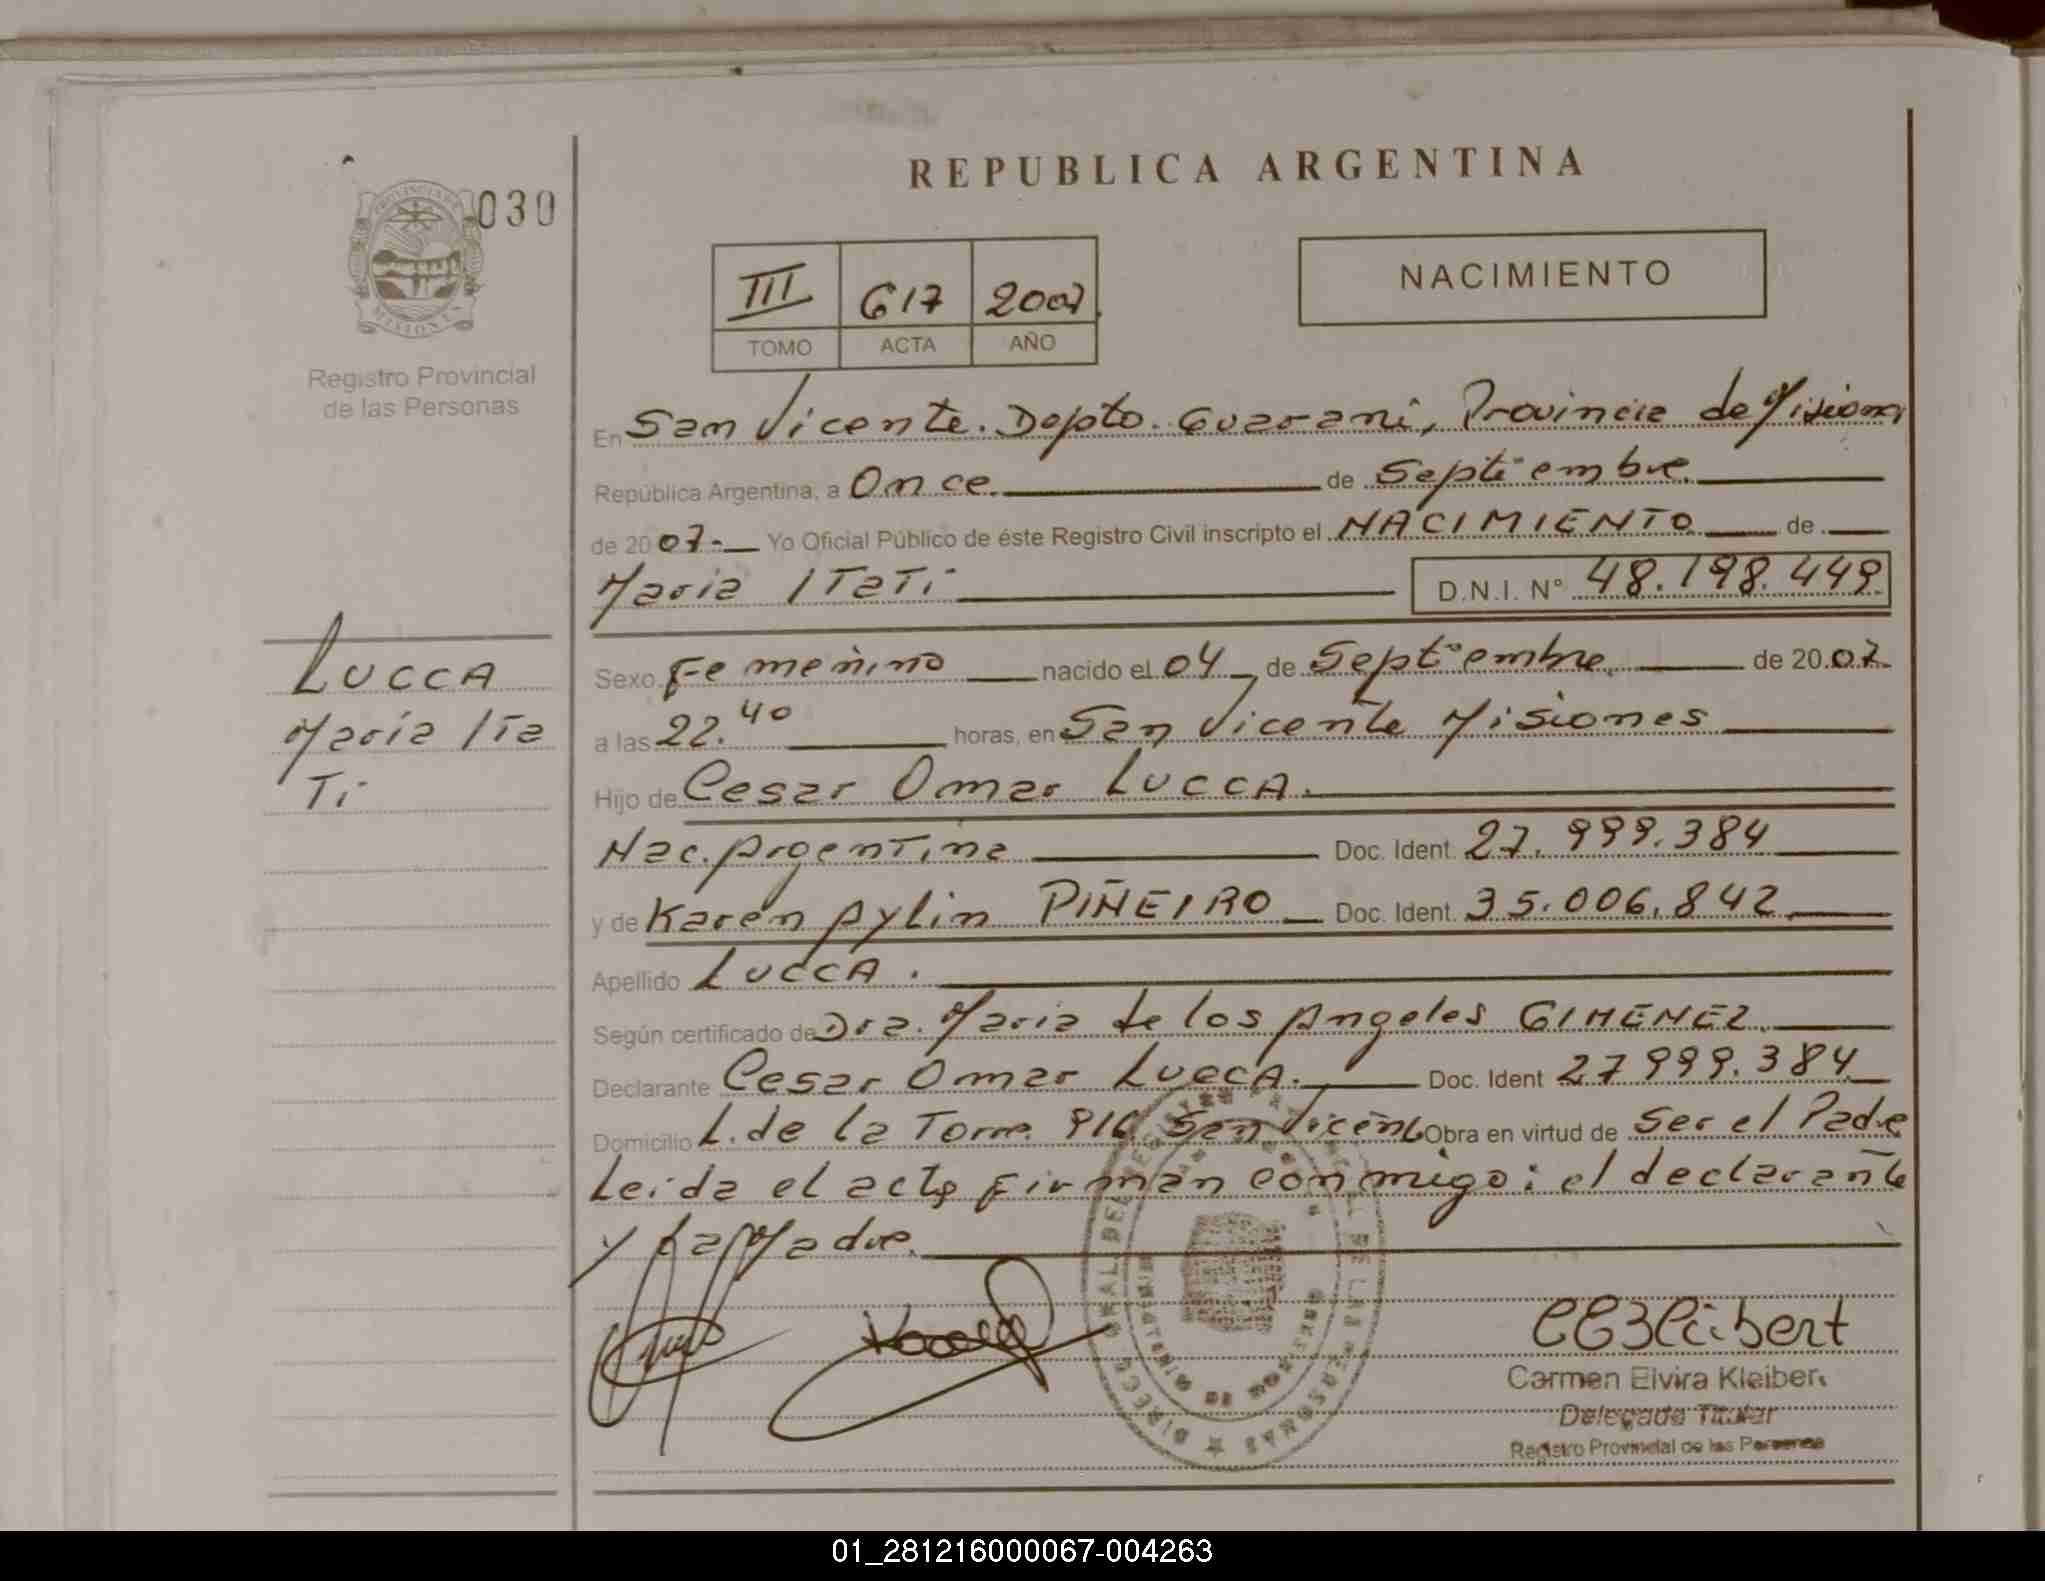 REPUBLICA ARGENTINA
030
PROVINCIA DE
MISIONES
Registro Provincial
de las Personas
III 617 2007
TOMO ACTA AÑO
NACIMIENTO
En San Vicente. Depto. Guaraní, Provincia de Misiones
República Argentina, a Once de Septiembre
de 2007.- Yo Oficial Público de éste Registro Civil inscripto el NACIMIENTO de
Maria ITaTi D.N.I. N° 48.198.449
LUCCA
María ITa
Ti
Sexo Femenino nacido el 04 de Septiembre de 2007.
a las 22.40 horas, en San Vicente Misiones
Hijo de Cesar Omar LUCCA.
Nac. Argentina Doc. Ident. 27.999.384
y de Karen Aylin PIÑEIRO Doc. Ident. 35.006.842
Apellido LUCCA.
Según certificado de Dra. Maria de los Angeles GIMENEZ
Declarante Cesar Omar LUCCA. Doc. Ident 27 999.384
Domicilio L. de la Torre 916 San Vicente Obra en virtud de Ser el Padre
Leida el acta firman conmigo: el declarante
y La Madre.
Carmen Elvira Kleiber
Delegada Titular
Registro Provincial de las Personas
01_281216000067-004263